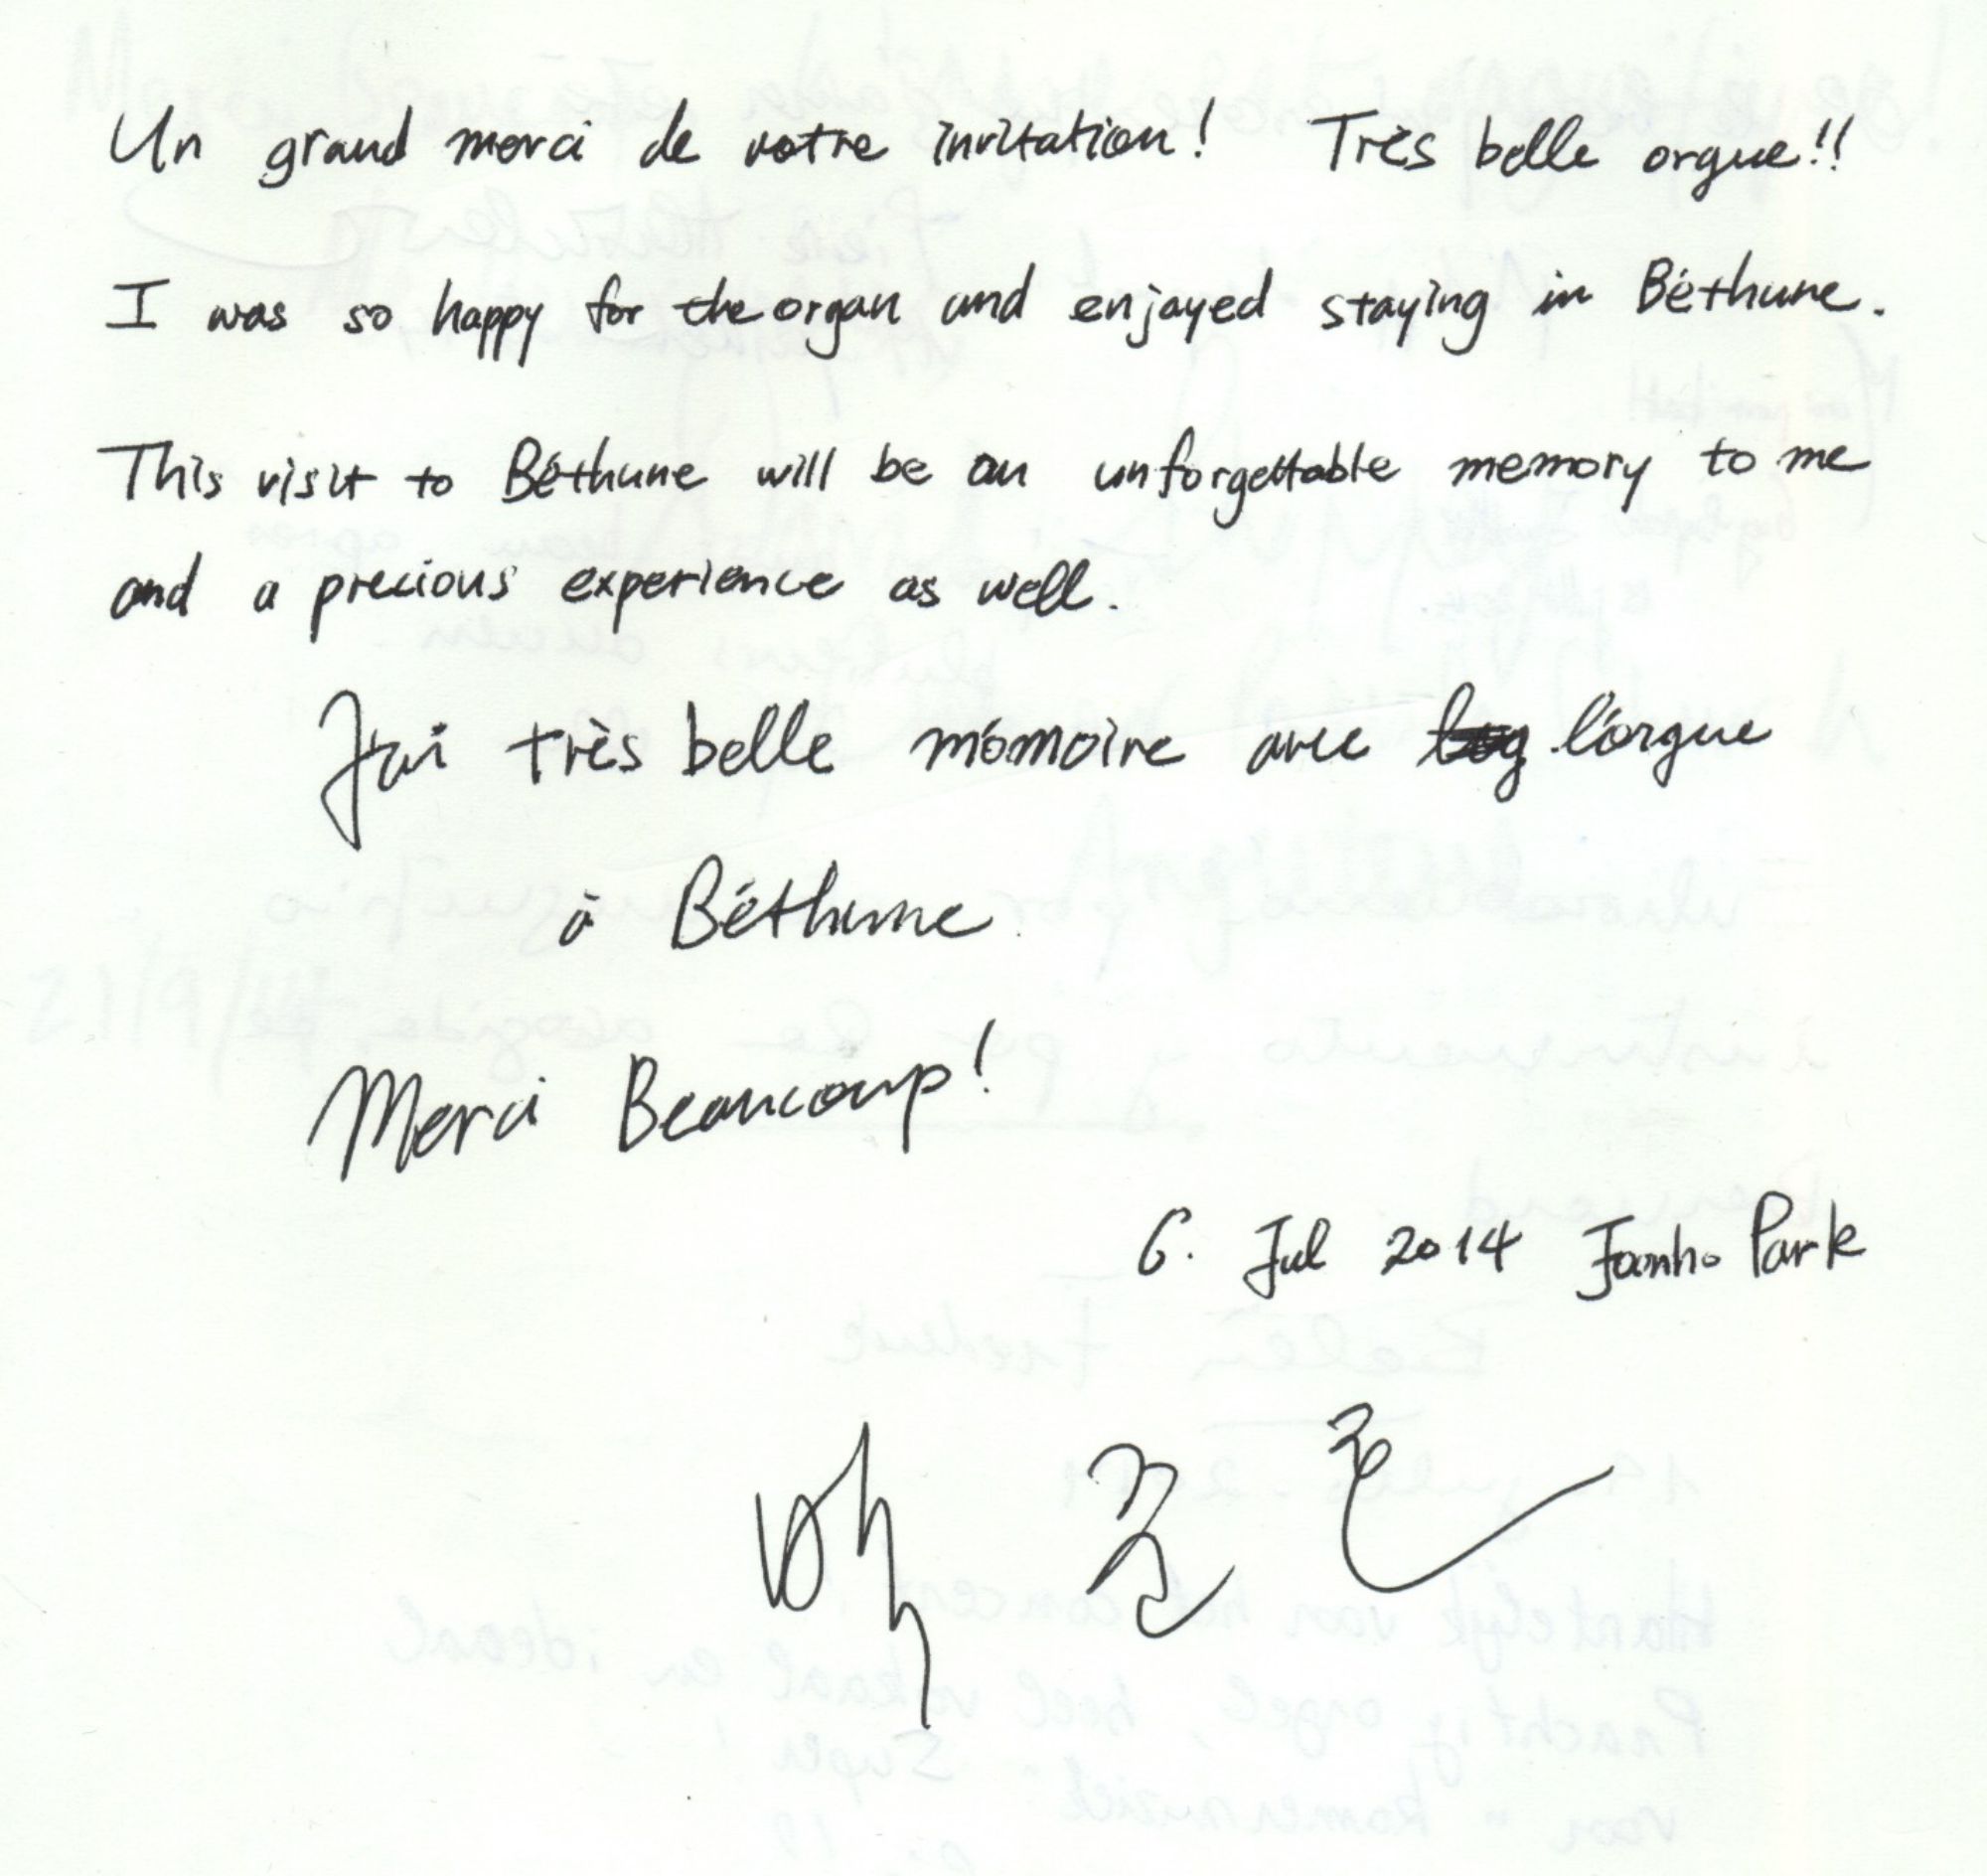 Un grand merci de votre invitation! Très belle orgue!!
I was so happy for the organ and enjayed staying in Béthune.
This visit to Béthune will be an unforgettable memory to me
and a precious experience as well.
J'ai très belle mémoire avec l'orgue
à Béthune
Merci Beaucoup!
6. Jul 2014 Joonho Park
박 준 호